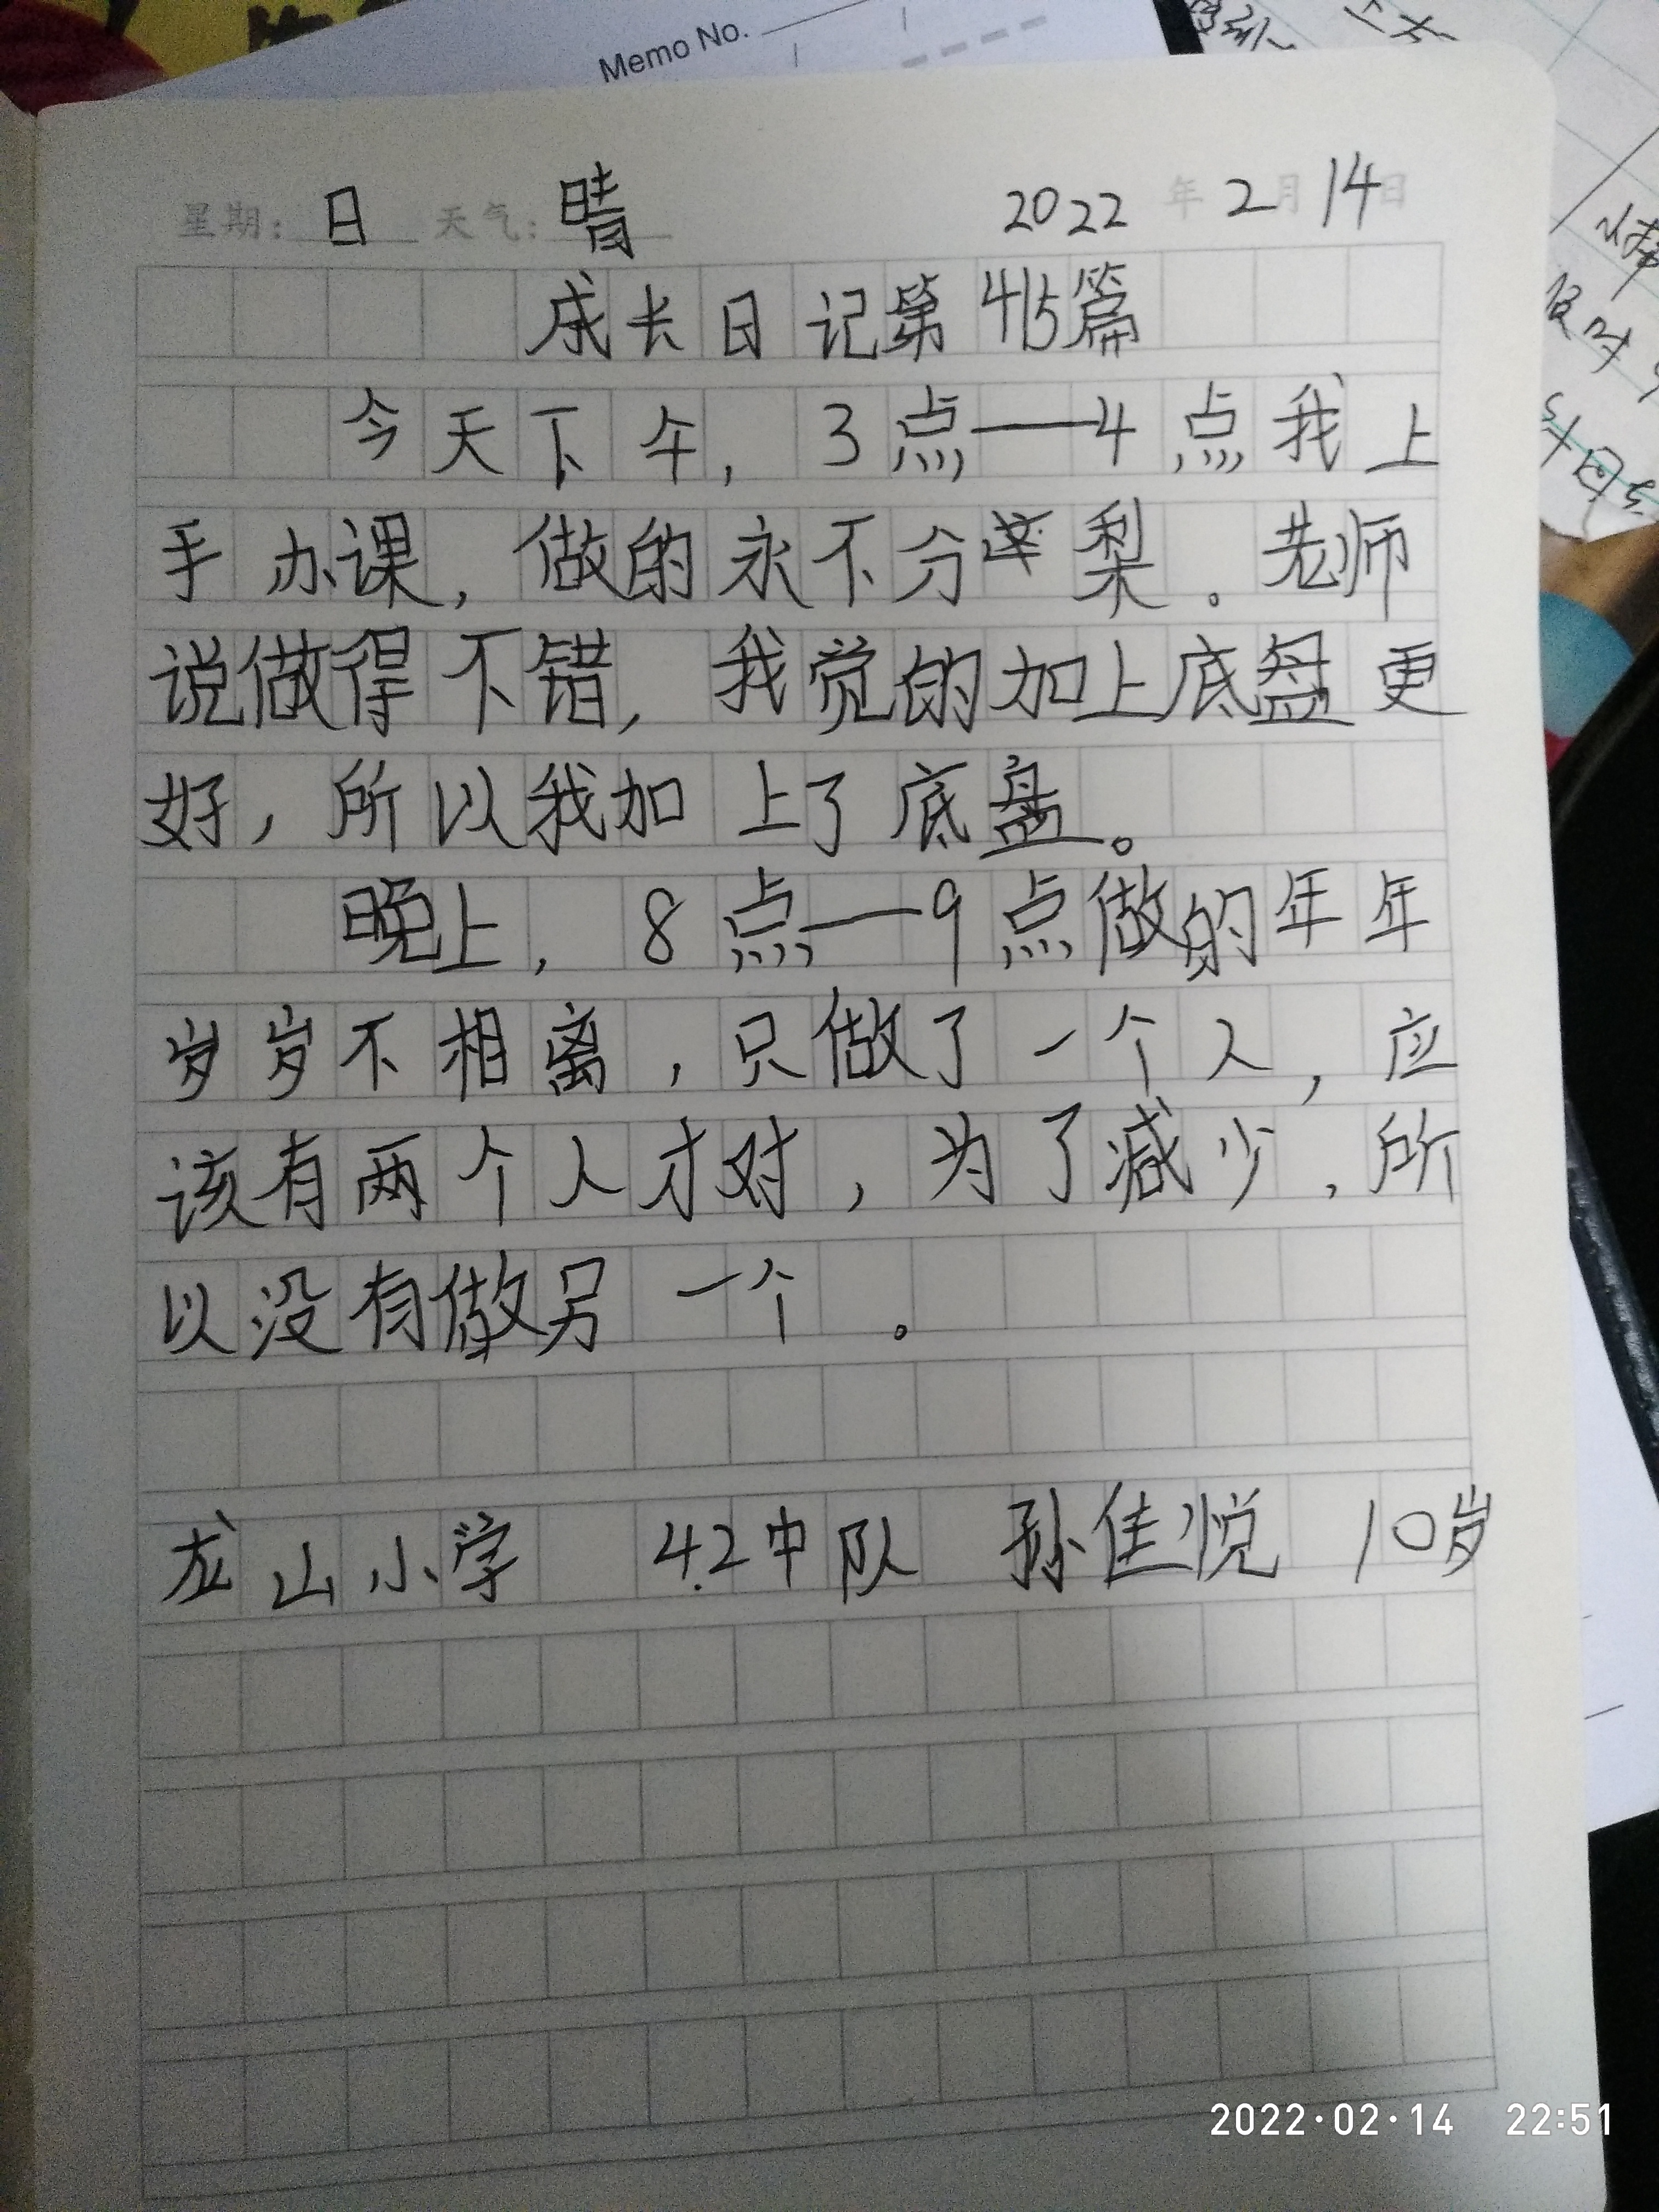 Memo No.
星期: 日 天气: 晴 2022 年 2 月 14 日
成长日记第415篇
今天下午，3点——4点我上
手办课，做的永不分梨。老师
说做得不错，我觉的加上底盘更
好，所以我加上了底盘。
晚上，8点——9点做的年年
岁岁不相离，只做了一个人，应
该有两个人才对，为了减少，所
以没有做另一个。
龙山小学 4.2中队 孙佳悦 10岁
2022·02·14 22:51